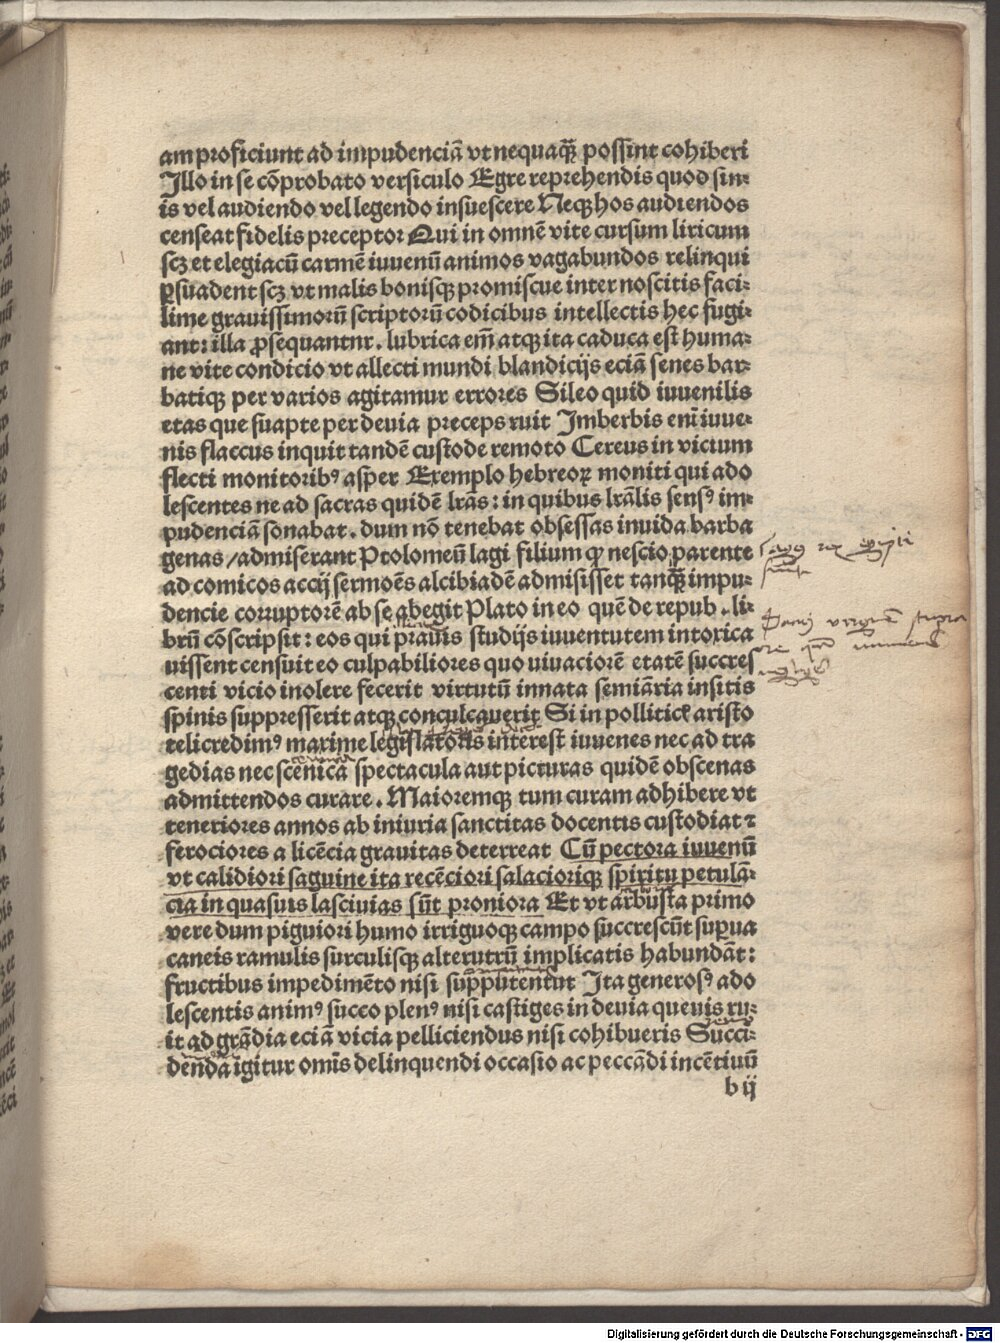 am proficiunt ad impudenciā vt nequaq̃ꝫ possint cohiberi
Illo in se cōprobato versiculo Egre reprehendis quod sin⸗
is vel audiendo vel legendo insuescere Neqꝫ hos audiendos
censeat fidelis preceptor Qui in omnē vite cursum liricum
scꝫ et elegiacū carmē iuuenū animos vagabundos relinqui
ꝑsuadent scꝫ vt malis bonisqꝫ promiscue inter noscitis faci⸗
lime grauissimorū scriptorū codicibus intellectis hec fugi⸗
ant: illa ꝓsequantnr. lubrica em̄ atqꝫ ita caduca est huma⸗
ne vite condicio vt allecti mundi blandicijs eciā senes bar⸗
batiqꝫ per varios agitamur errores Sileo quid iuuenilis
etas que suapte per deuia preceps ruit Imberbis eni iuue⸗
nis flaccus inquit tandē custode remoto Cereus in vicium
flecti monitoribꝰ asper Exemplo hebreoꝝ moniti qui ado
lescentes ne ad sacras quidē lr̄as: in quibus lr̄alis sensꝰ im⸗
pudenciā sonabat. dum nō tenebat obsessas inuida barba
genas/admiserant Ptolomeū lagi filium ꝙ nescio parente
ad comicos accij sermoēs alcibiadē admisisset tanq̃ꝫ impu⸗
dencie corruptorē ab se abegit Plato in eo quē de repub. li⸗
brū cōscripsit: eos qui prauis studijs iuuentutem intoxica
uissent censuit eo culpabiliores quo viuaciorē etatē succres
centi vicio inolere fecerit virtutū innata semiāria insitis
spinis suppresserit atqꝫ conculcauerit Si in pollitick aristo
teli credimꝰ maxime legislatoris interest iuuenes nec ad tra
gedias nec scēnica spectacula aut picturas quidē obscenas
admittendos curare. Maioremqꝫ tum curam adhibere vt
teneriores annos ab iniuria sanctitas docentis custodiat ⁊
ferociores a licēcia grauitas deterreat Cū pectora iuuenū
vt calidiori saguine ita recēciori salacioriqꝫ spiritu petulā⸗
cia in quasuis lasciuias sūt proniora Et vt arbusta primo
vere dum piguiori humo irriguoqꝫ campo succrescūt suꝑua
caneis ramulis surculisqꝫ alterutrū implicatis habundāt:
fructibus impedimēto nisi supputentut Ita generosꝰ ado
lescentis animꝰ succo plenꝰ nisi castiges in deuia queuis ru⸗
it ad grādia eciā vicia pelliciendus nisi cohibueris Succi⸗
denda igitur omis delinquendi occasio ac peccādi incētiuū
b ij
Digitalisierung gefördert durch die Deutsche Forschungsgemeinschaft - DFG